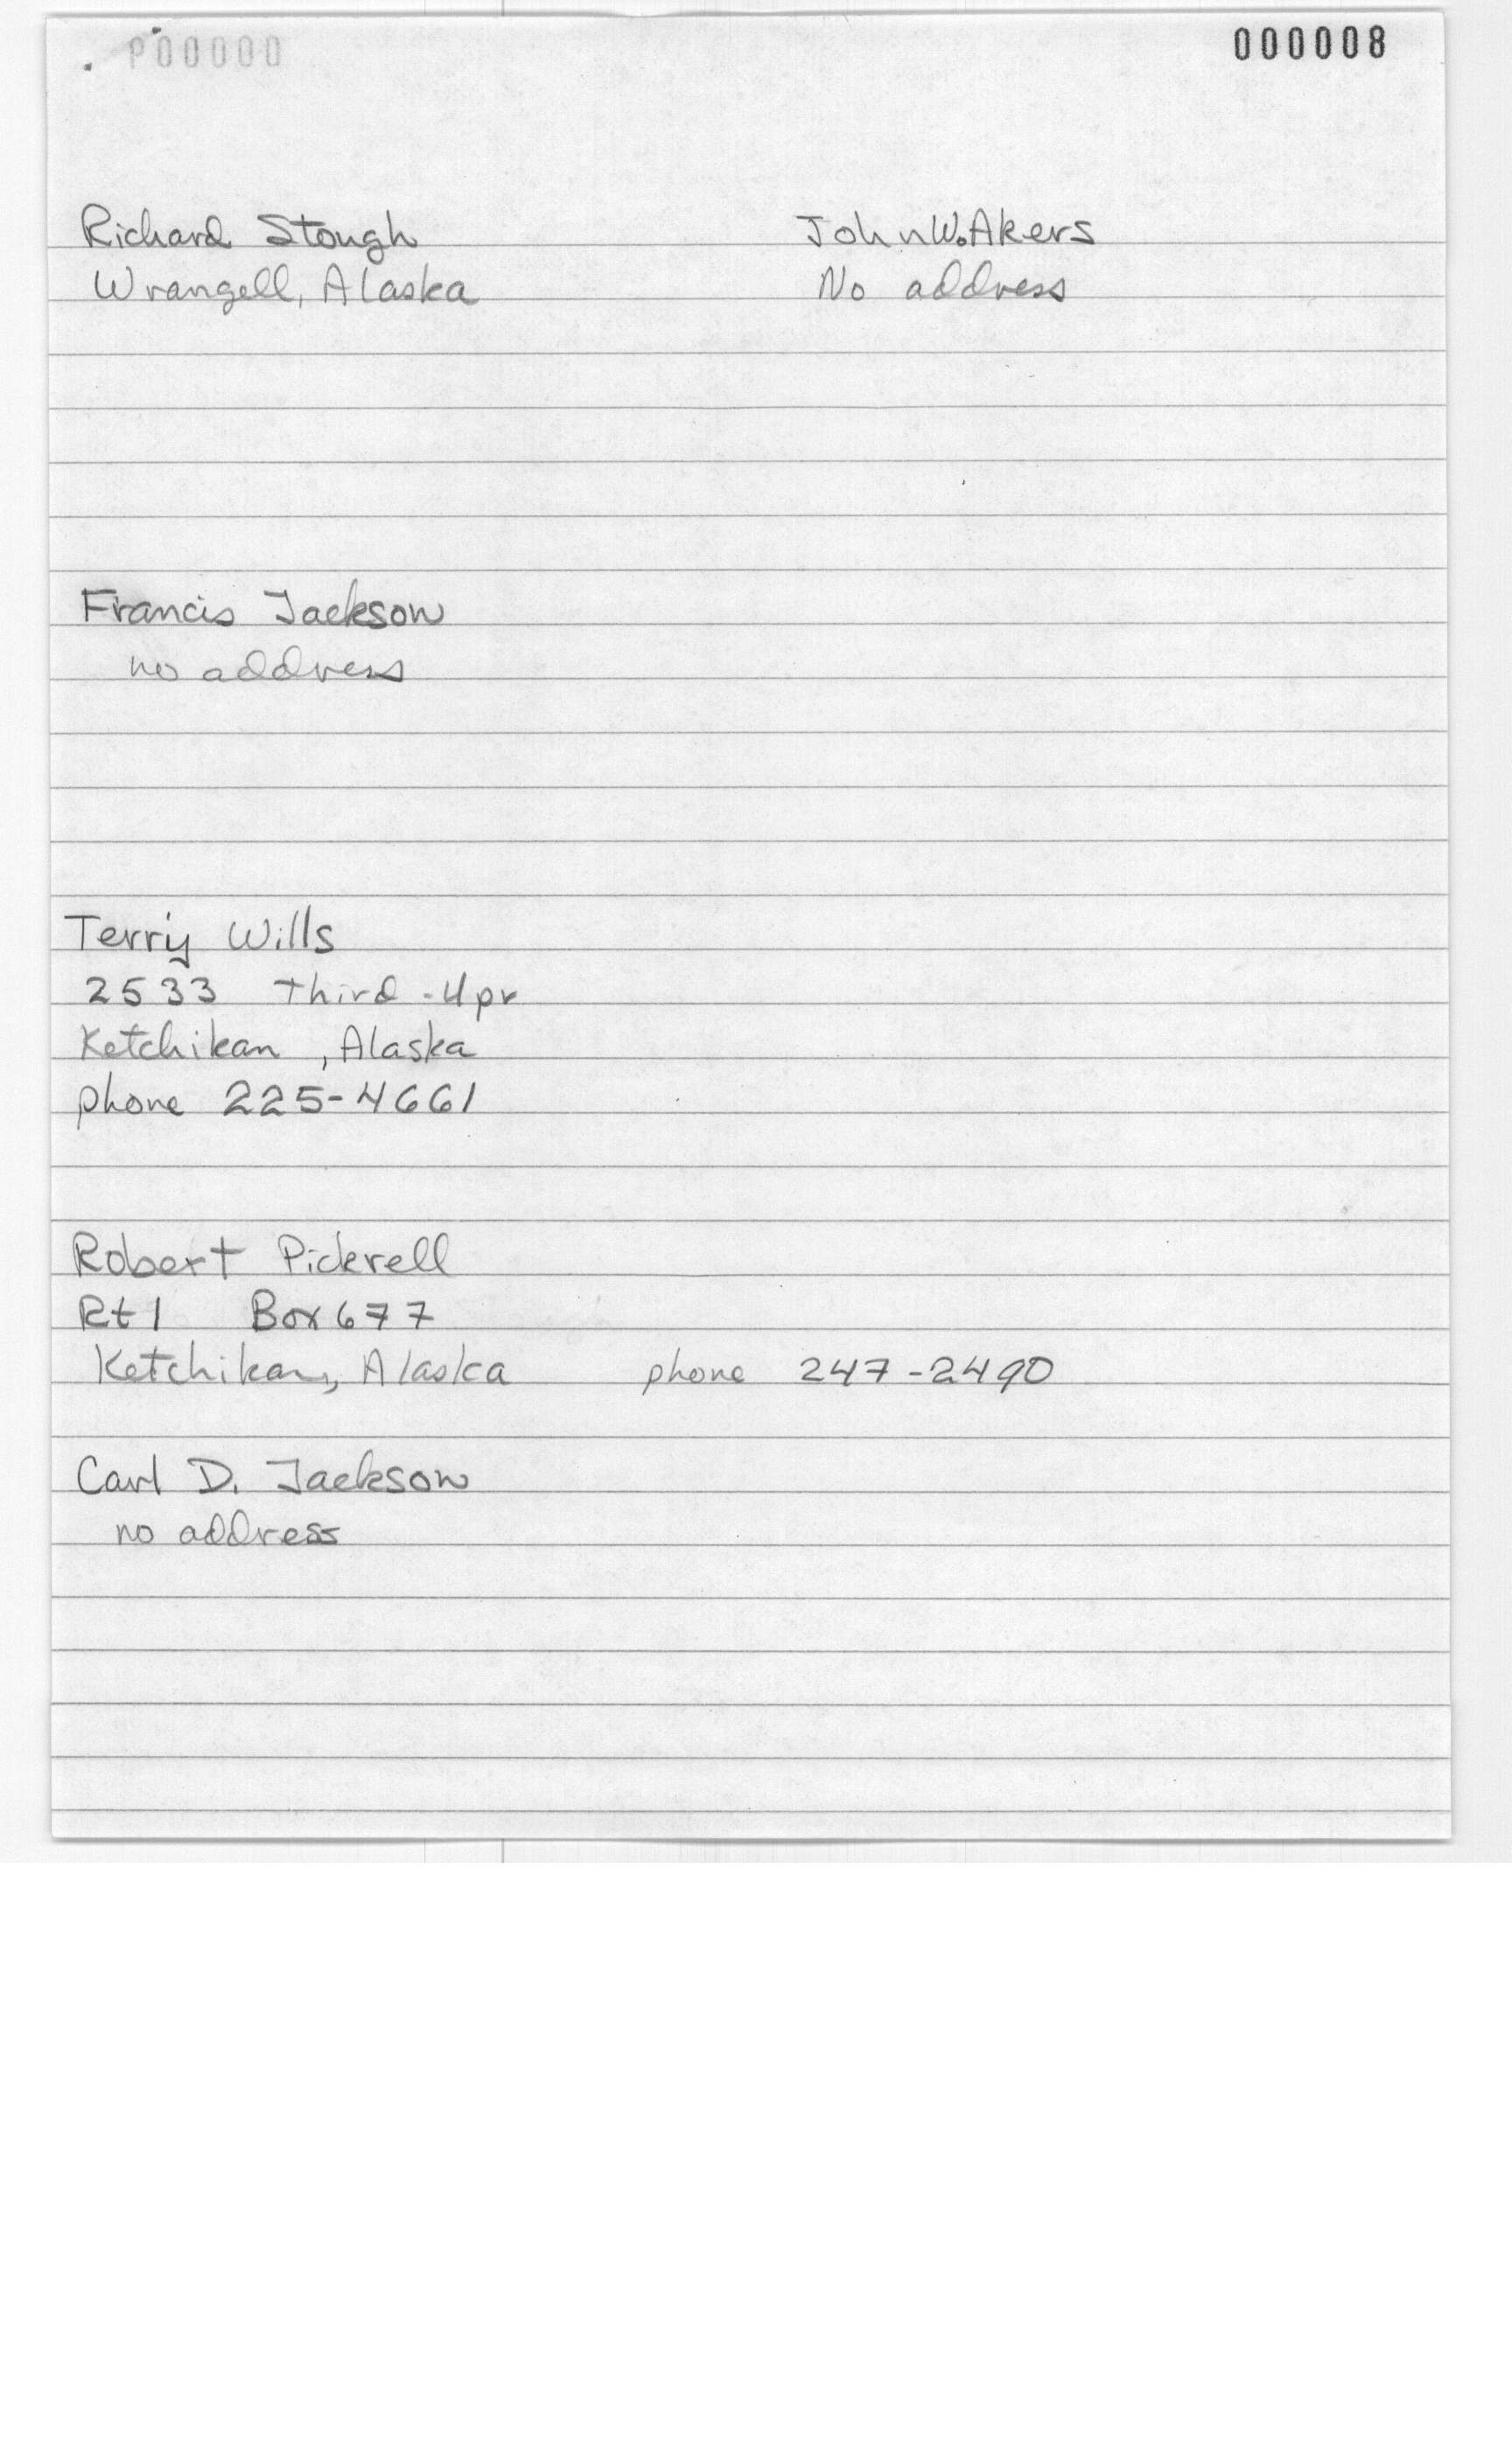 000008
Richard Stough
Wrangell, Alaska
John W. Akers
No address
Francis Jackson
no address
Terry Wills
2533 Third - Upr
Ketchikan, Alaska
phone 225-4661
Robert Pickrell
Rt 1 Box 677
Ketchikan, Alaska phone 247-2490
Carl D. Jackson
no address